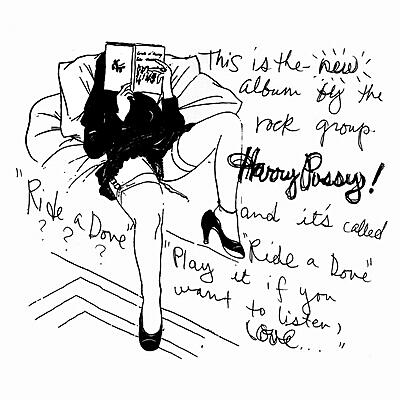 This is the new
album by the
rock group.
Harry Pussy!
and it's called
"Ride a Dove"
"Play it if you
want to listen,
Love..."
"Ride a Dove"
? ? ?